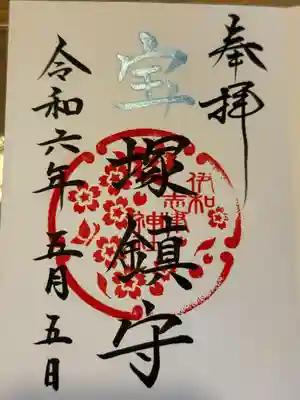 奉拝
宝塚鎮守
伊和志津神社
令和六年 五月 五日